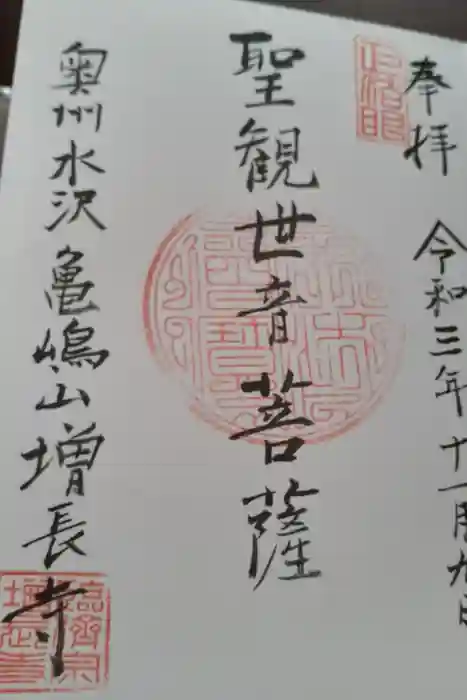 奉拝
令和三年十一月九日
聖観世音菩薩
奥州水沢亀嶋山増長寺